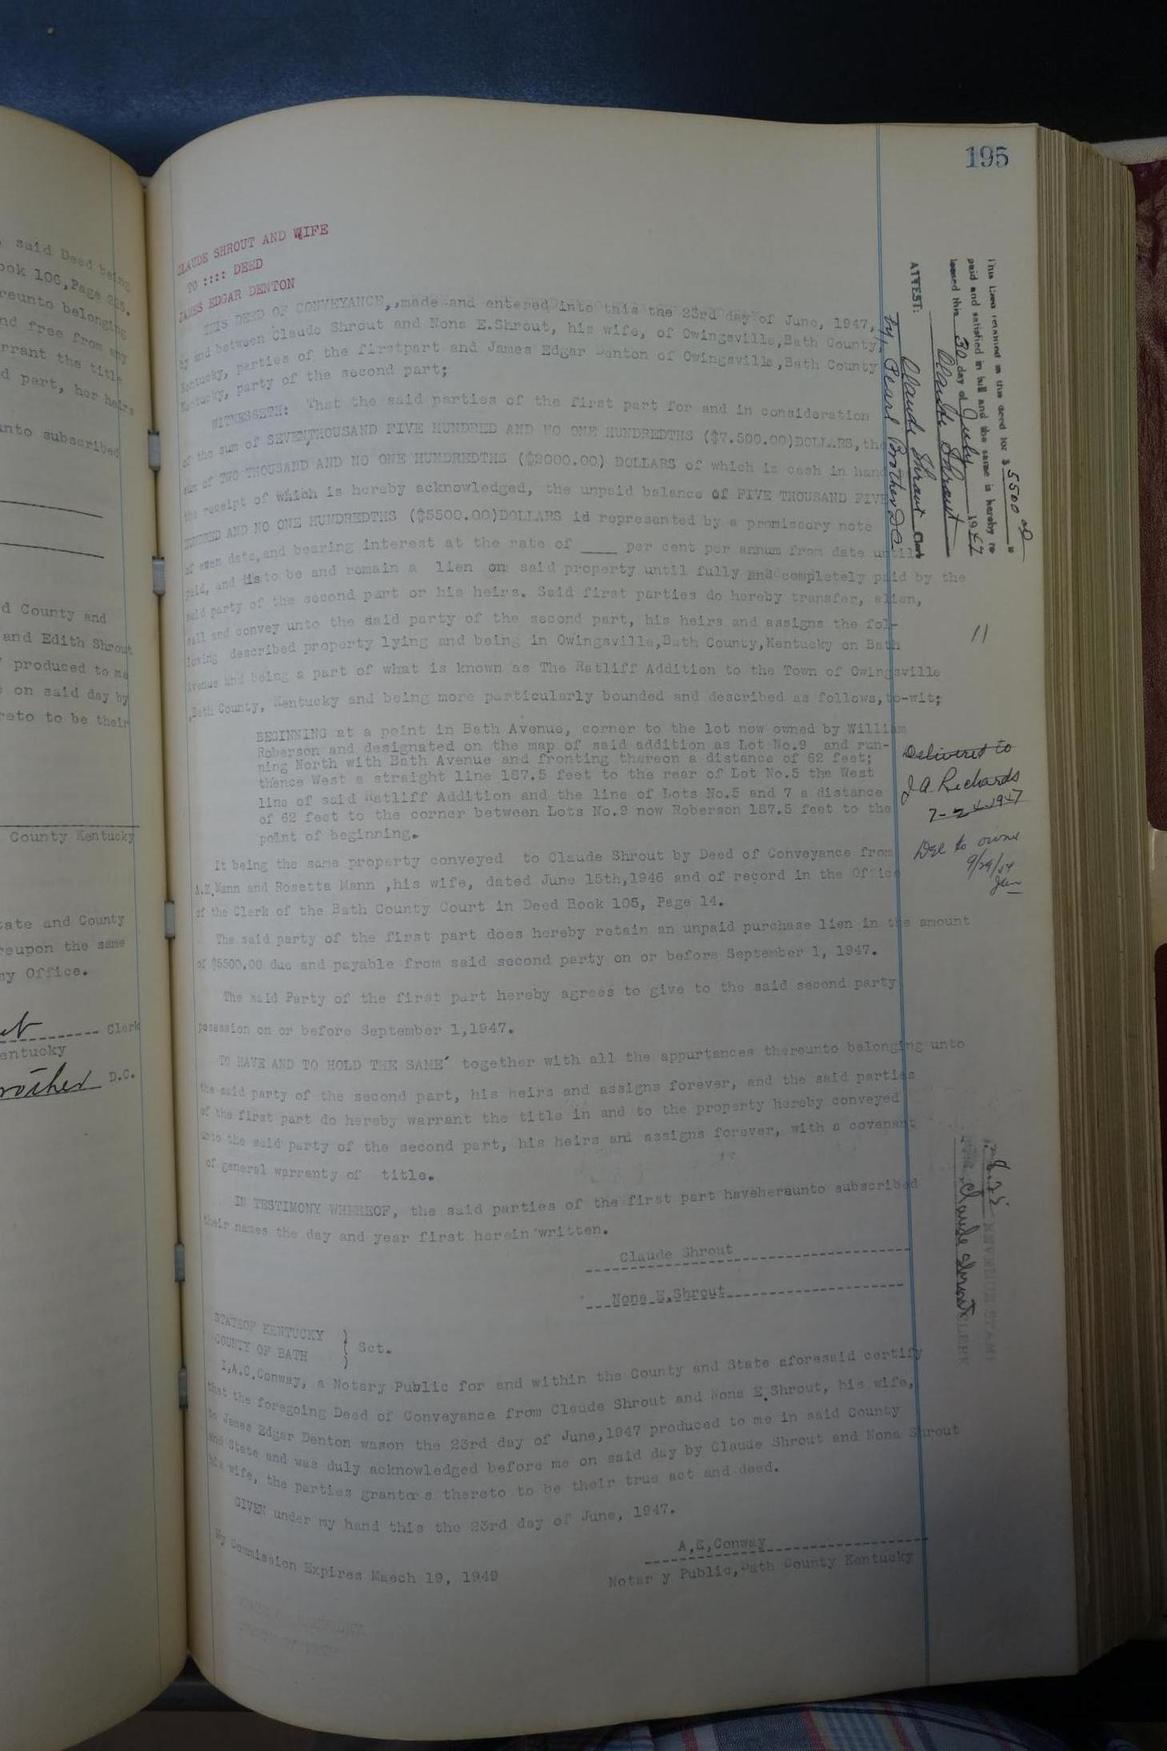 said Deed being
ook 106,Page 225.
reunto belonging
nd free from any
rrant the title
d part, her heirs
unto subscribed
d County and
and Edith Shrout
produced to me
on said day by
reto to be their
County Kentucky
tate and County
reupon the same
my Office.
Clerk
entucky
rother D.C.
195
CLAUDE SHROUT AND WIFE
TO :::: DEED
JAMES EDGAR DENTON
THIS DEED OF CONVEYANCE,,made and entered into this the 23rd day of June, 1947,
by and between Claude Shrout and Nona E.Shrout, his wife, of Owingsville,Bath County,
Kentucky, parties of the firstpart and James Edgar Denton of Owingsville,Bath County
Kentucky, party of the second part;
WITNESSETH: That the said parties of the first part for and in consideration
of the sum of SEVENTHOUSAND FIVE HUNDRED AND NO ONE HUNDREDTHS ($7.500.00)DOLLARS,the
sum of TWO THOUSAND AND NO ONE HUNDREDTHS ($2000.00) DOLLARS of which is cash in hand
the receipt of which is hereby acknowledged, the unpaid balance of FIVE THOUSAND FIVE
HUNDRED AND NO ONE HUNDREDTHS ($5500.00)DOLLARS id represented by a promissory note
of even date,and bearing interest at the rate of ____ per cent per annum from date until
paid, and is to be and remain a lien on said property until fully and completely paid by the
said party of the second part or his heirs. Said first parties do hereby transfer, alien,
sell and convey unto the said party of the second part, his heirs and assigns the fol-
lowing described property lying and being in Owingsville,Bath County,Kentucky on Bath
Avenue and being a part of what is known as The Ratliff Addition to the Town of Owingsville
,Bath County, Kentucky and being more particularly bounded and described as follows,to-wit;
BEGINNING at a point in Bath Avenue, corner to the lot now owned by William
Roberson and designated on the map of said addition as Lot No.9 and run-
ning North with Bath Avenue and fronting thereon a distance of 62 feet;
thence West a straight line 187.5 feet to the rear of Lot No.5 the West
line of said Ratliff Addition and the line of Lots No.5 and 7 a distance
of 62 feet to the corner between Lots No.9 now Roberson 187.5 feet to the
point of beginning.
It being the same property conveyed to Claude Shrout by Deed of Conveyance from
A.E.Mann and Rosetta Mann ,his wife, dated June 15th,1946 and of record in the Office
of the Clerk of the Bath County Court in Deed Book 105, Page 14.
The said party of the first part does hereby retain an unpaid purchase lien in the amount
of $5500.00 due and payable from said second party on or before September 1, 1947.
The said Party of the first part hereby agrees to give to the said second party
posession on or before September 1,1947.
TO HAVE AND TO HOLD THE SAME together with all the appurtances thereunto belonging unto
the said party of the second part, his heirs and assigns forever, and the said parties
of the first part do hereby warrant the title in and to the property hereby conveyed
unto the said party of the second part, his heirs and assigns forever, with a covenant
of general warranty of title.
IN TESTIMONY WHEREOF, the said parties of the first part havehereunto subscribed
their names the day and year first herein written.
Claude Shrout
Nona E.Shrout
STATEOF KENTUCKY
COUNTY OF BATH
Sct.
I,A.C.Conway, a Notary Public for and within the County and State aforesaid certify
that the foregoing Deed of Conveyance from Claude Shrout and Nona E.Shrout, his wife,
to James Edgar Denton wason the 23rd day of June,1947 produced to me in said County
and State and was duly acknowledged before me on said day by Claude Shrout and Nona Shrout
his wife, the parties grantors thereto to be their true act and deed.
GIVEN under my hand this the 23rd day of June, 1947.
A,E,Conway
My Commission Expires March 19, 1949
Notar y Public,Bath County Kentucky
This Lien retained in this deed for $ 5500 00
paid and satisfied in full and the same is hereby re-
leased this 30 day of July 1947
Claude Shrout
ATTEST: Claude Shrout Clerk
by Pearl Brother D.C.
11
Delivered to
J.A. Richards
7-24-1947
Del to owner
9/29/54
$8.25 REVENUE STAMP
Claude Shrout CLERK